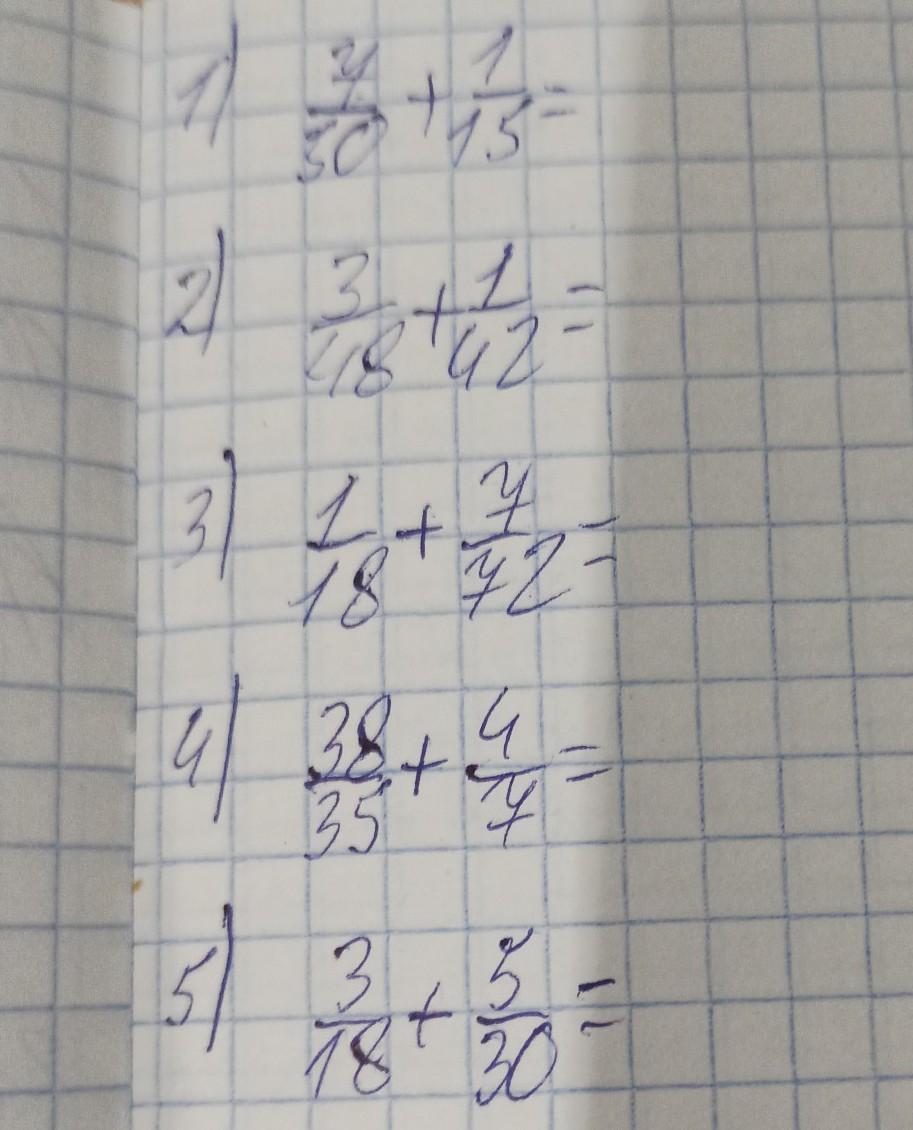 1) 7/30 + 1/15 =
2) 3/48 + 1/42 =
3) 1/18 + 7/72 =
4) 38/35 + 4/7 =
5) 3/18 + 5/30 =